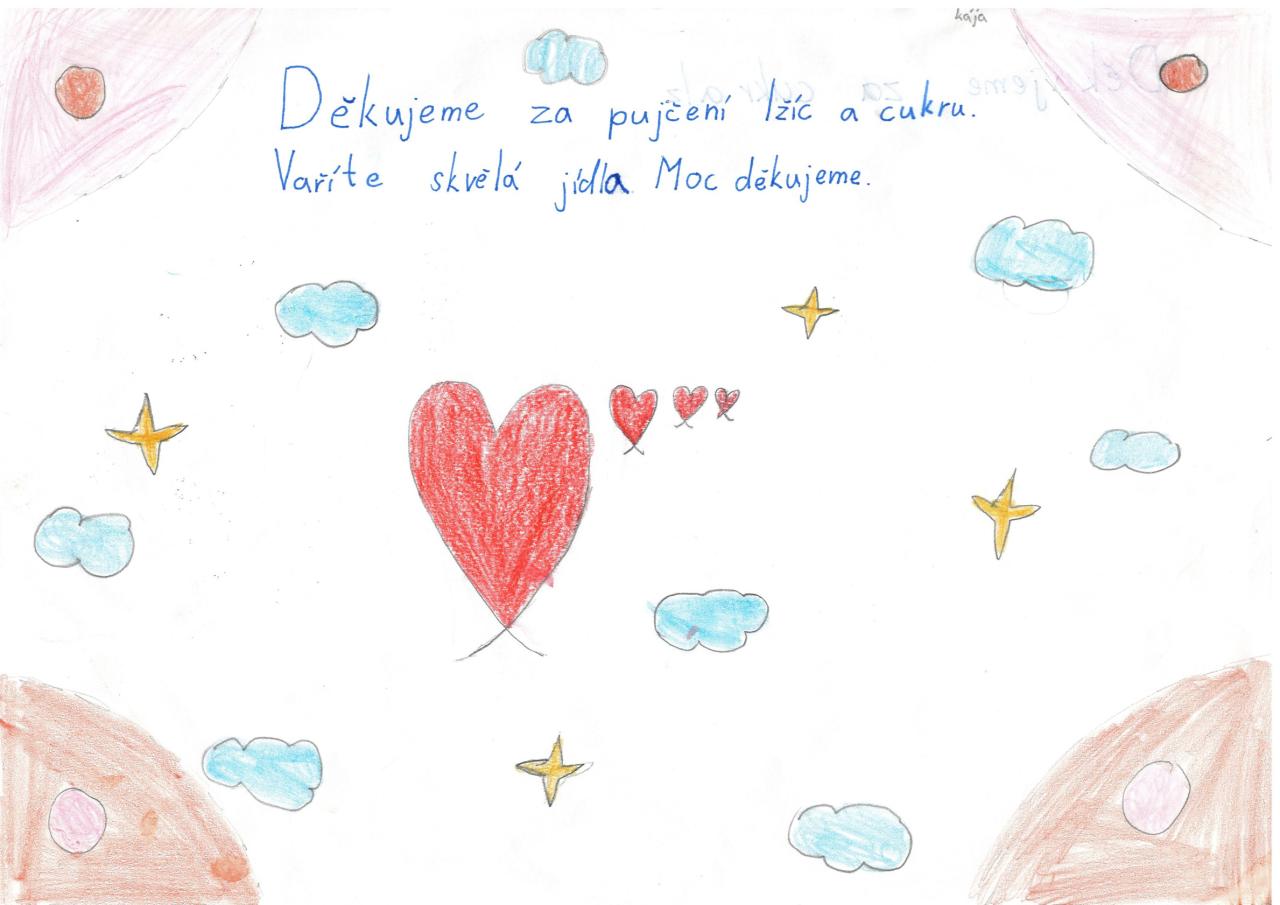 kája
Děkujeme za pujčení lžíc a cukru.
Vaříte skvělá jídla Moc děkujeme.